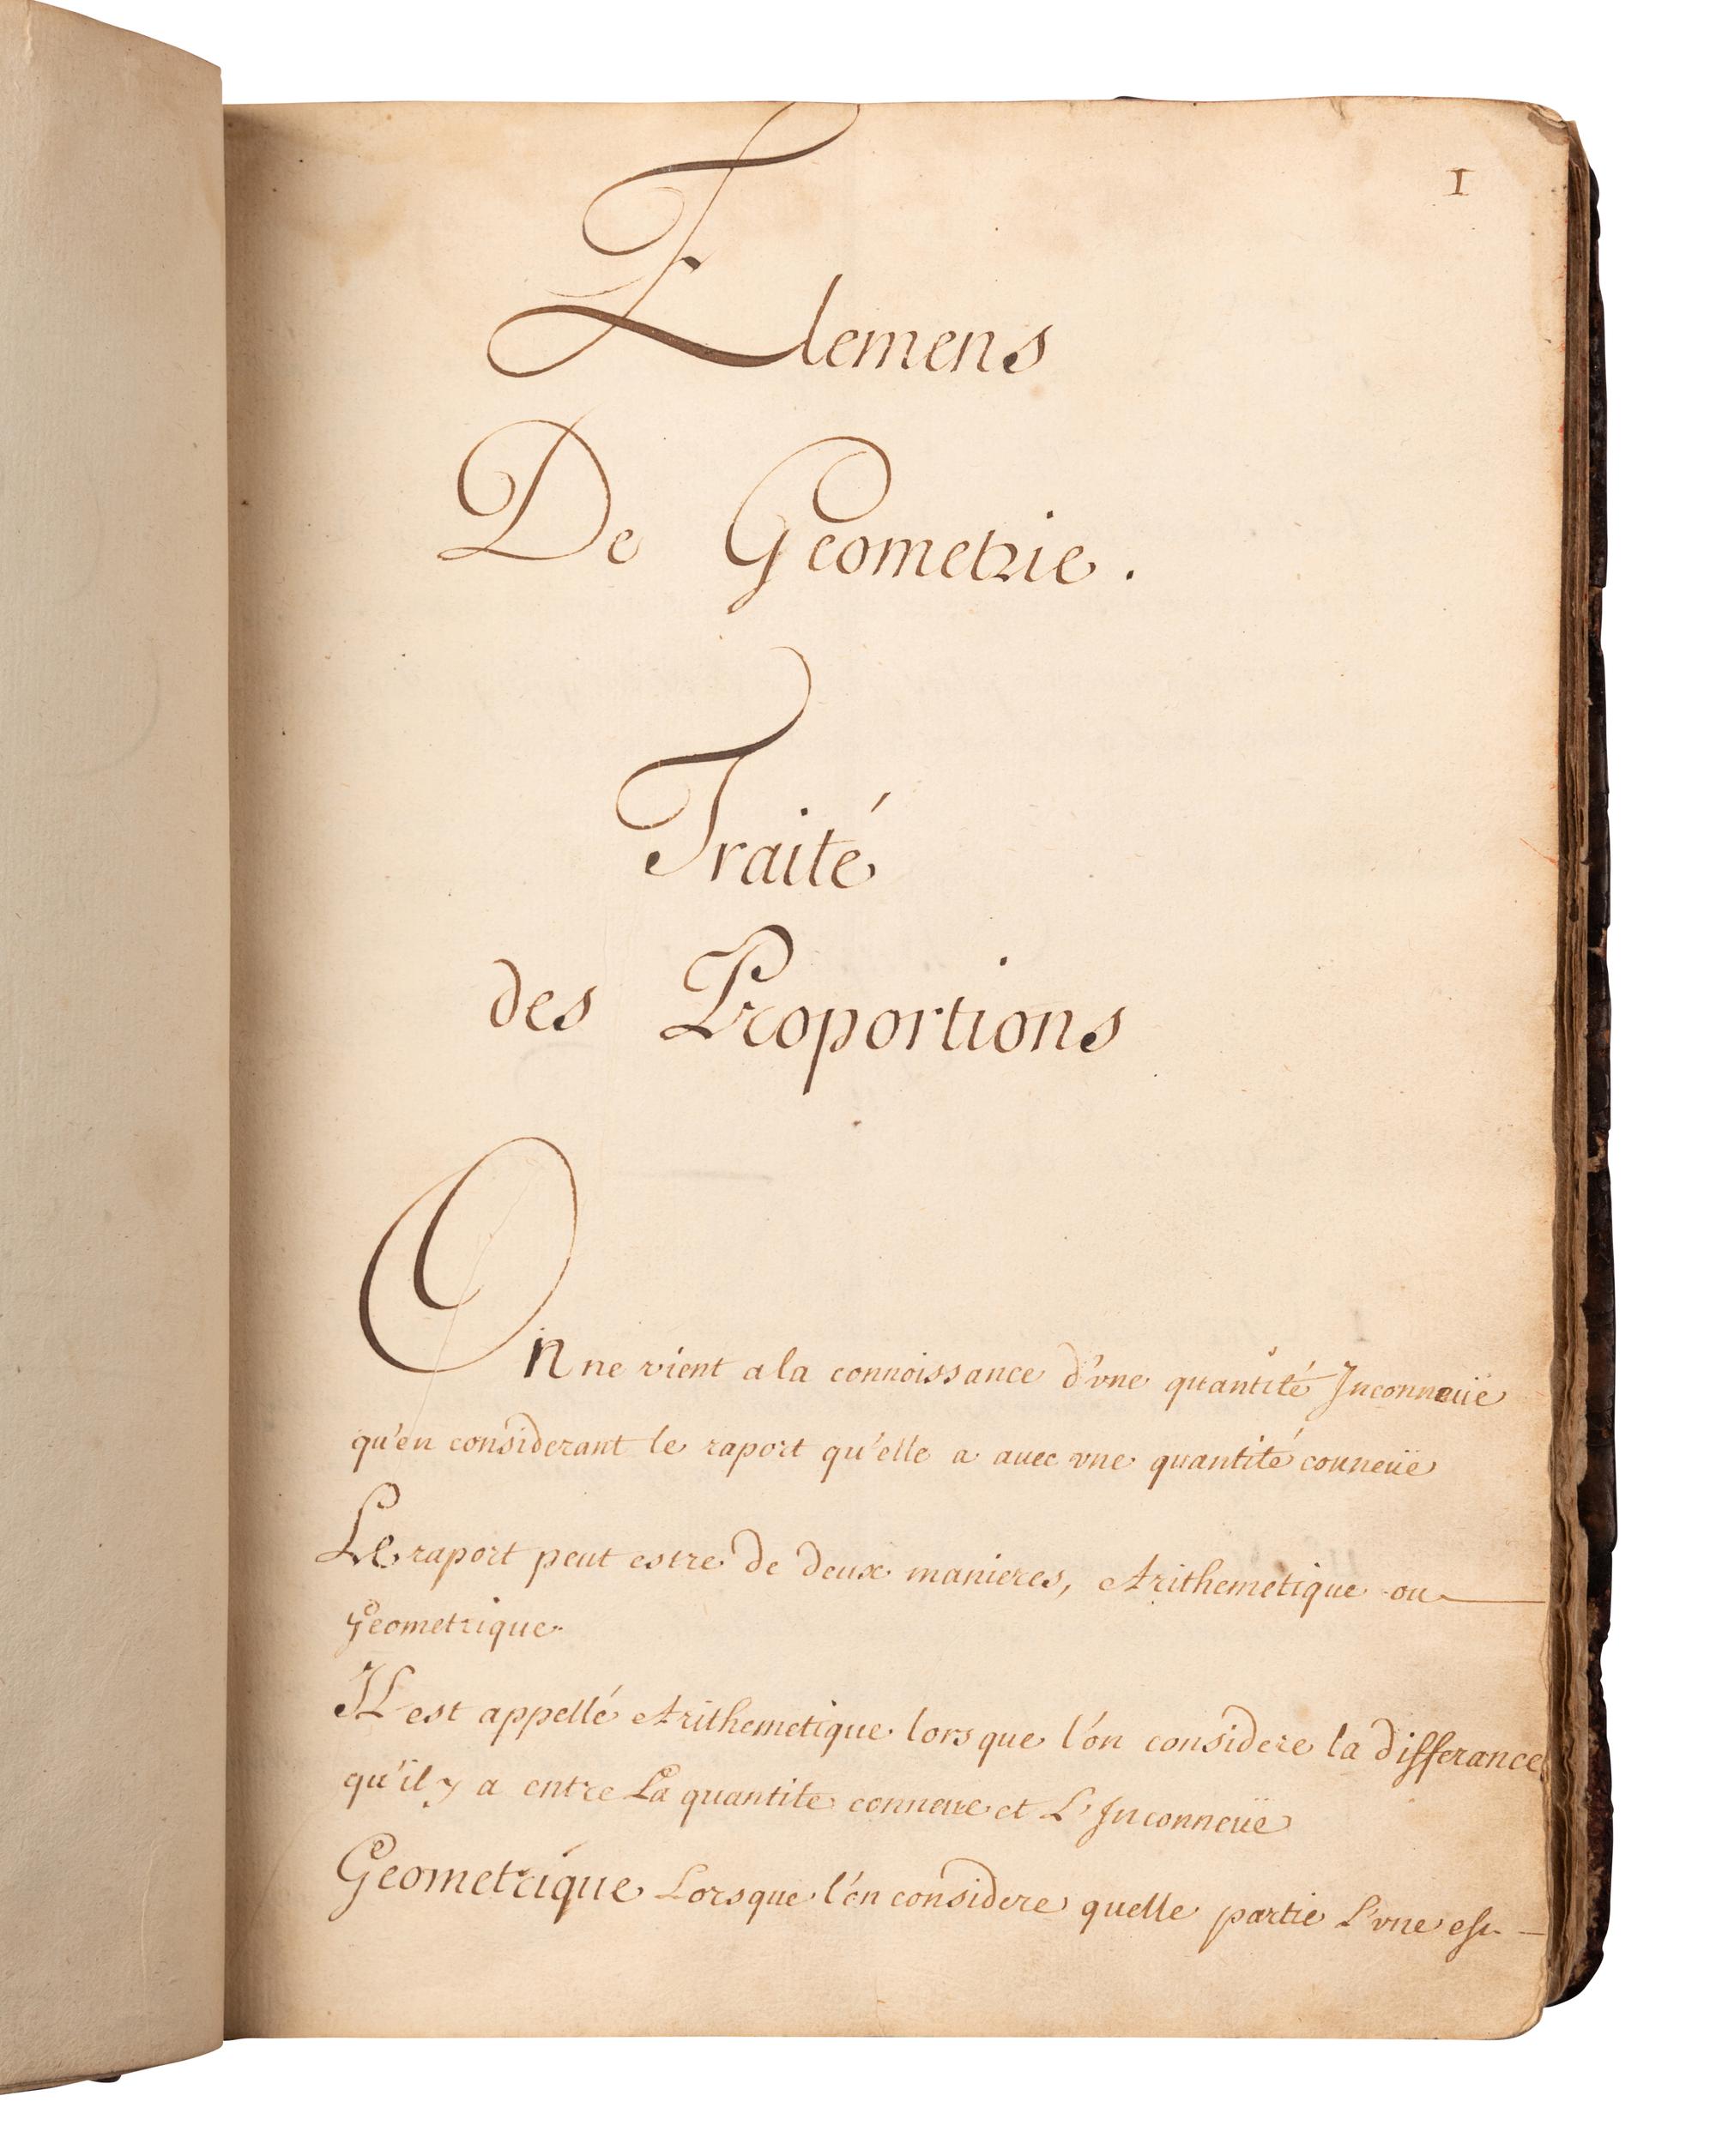 1
Elemens
De Geometrie.
Traité
des Proportions
On ne vient a la connoissance d'vne quantité Inconneüe
qu'en considerant le raport qu'elle a auec vne quantité conneüe
Le raport peut estre de deux manieres, Arithemetique ou
Geometrique
Il est appellé Arithemetique lorsque l'on considere la differance
qu'il y a entre La quantite conneue et L'Inconneüe
Geometrique Lorsque l'on considere quelle partie L'vne est